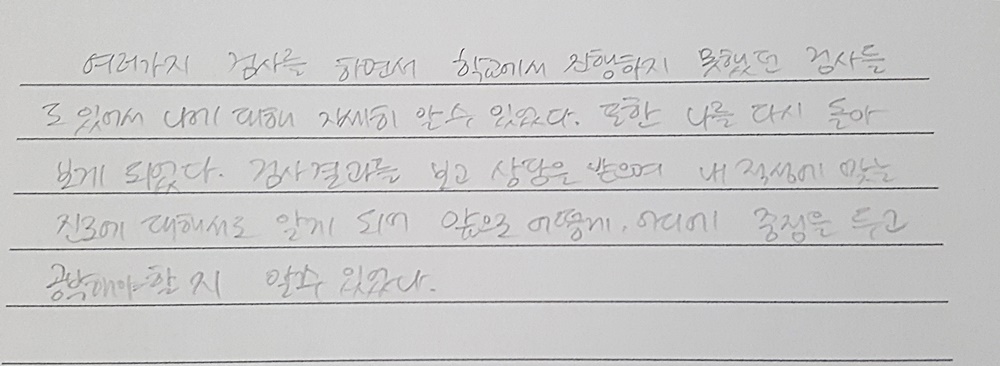 여러가지 검사를 하면서 학교에서 진행하지 못했던 검사들
도 있어서 나에 대해 자세히 알수 있었다. 또한 나를 다시 돌아
보게 되었다. 검사결과를 보고 상담을 받으며 내 적성에 맞는
진로에 대해서도 알게 되어 앞으로 어떻게, 어디에 중점을 두고
공부해야할 지 알수 있었다.